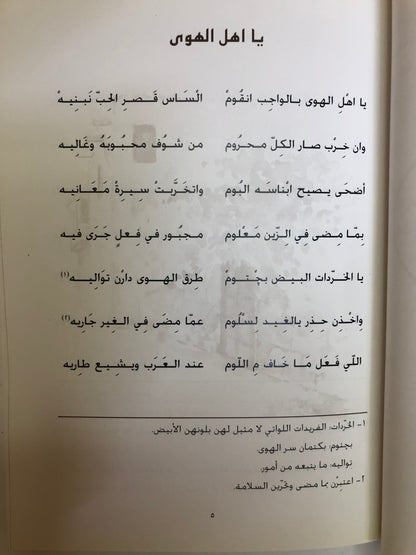 يا اهل الهوى
يا اهْلِ الهوى بـالواجِب انقُومْ الْسَاس قَصرِ الحِبّ نَبنِيهْ
وان خِرْب صار الكِلّ محْروم من شُوف محْبُوبَهْ وغَاليه
أضحَى يصبح ابْناسَه البُوم واتخَرَّبتْ سِيرةْ مَعَانِيه
بِمَا مِضى في الزّين مَعْلوم مجْبُور في فِعلٍ جَرَى فيه
يا الخَرْدات البيض بِجْتومْ طرق الهوى دارْن تواليه(١)
واخْذِن حِذرِ يالغِيد لِسْلُوم عمّا مِضَى في الغير جَاريه(٢)
اللّي فَعَل مَا خَاف مِ اللّوم عند العَرَب ويشيع طاريه
١- الخَردات: الفريدات اللواتي لا مثيل لهن بلونهن الأبيض.
بجتوم: بكتمان سر الهوى.
تواليه: ما يتبعه من أمور.
٢- اعتبِرْن بما مضى وتحرّين السلامة.
٥